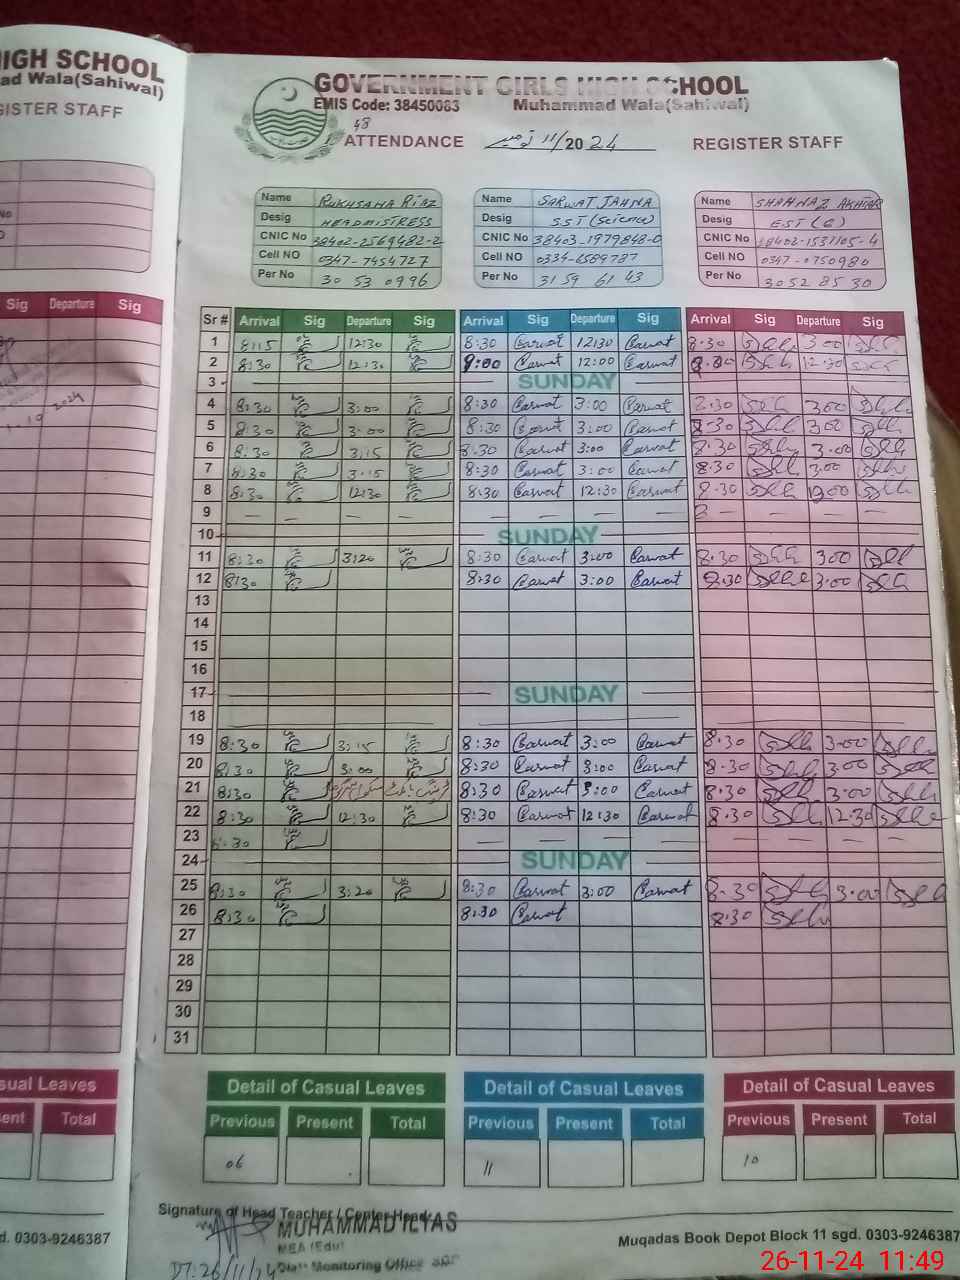 HIGH SCHOOL
ad Wala(Sahiwal)
GISTER STAFF
No
Sig Departure Sig
GOVERNMENT GIRLS HIGH SCHOOL
EMIS Code: 38450083 Muhammad Wala(Sahiwal)
48
ATTENDANCE 11/2024 REGISTER STAFF
Name RUKHSANA RIAZ Name SARWAT JAHNA Name SHAHNAZ AKHTAR
Desig HEADMISTRESS Desig SST (Science) Desig EST (E)
CNIC No 38402-2569482-2 CNIC No 38403-1979848-0 CNIC No 38402-1531105-4
Cell NO 0347-7454727 Cell NO 0334-6589787 Cell NO 0347-0750980
Per No 30 53 0996 Per No 3159 61 43 Per No 3052 85 30
Sr # Arrival Sig Departure Sig Arrival Sig Departure Sig Arrival Sig Departure Sig
1 8:15 12:30 8:30 Sarwat 12:30 Sarwat 8:30 3:00
2 8:30 12:30 9:00 Sarwat 12:00 Sarwat 8:30 12:30
3 SUNDAY
4 8:30 3:00 8:30 Sarwat 3:00 Sarwat 8:30 3:00
5 8:30 3:00 8:30 Sarwat 3:00 Sarwat 8:30 3:00
6 8:30 3:15 8:30 Sarwat 3:00 Sarwat 8:30 3:00
7 8:30 3:15 8:30 Sarwat 3:00 Sarwat 8:30 3:00
8 8:30 12:30 8:30 Sarwat 12:30 Sarwat 8:30
9
10 SUNDAY
11 8:30 3:20 8:30 Sarwat 3:00 Sarwat 8:30 3:00
12 8:30 8:30 Sarwat 3:00 Sarwat 8:30 3:00
13
14
15
16
17 SUNDAY
18
19 8:30 3:15 8:30 Sarwat 3:00 Sarwat 8:30 3:00
20 8:30 3:00 8:30 Sarwat 3:00 Sarwat 8:30 3:00
21 8:30 8:30 Sarwat 3:00 Sarwat 8:30 3:00
22 8:30 12:30 8:30 Sarwat 12:30 Sarwat 8:30 12:30
23 8:30
24 SUNDAY
25 8:30 3:20 8:30 Sarwat 3:00 Sarwat 8:30 3:00
26 8:30 8:30 Sarwat 8:30
27
28
29
30
31
sual Leaves
ent Total
Detail of Casual Leaves Detail of Casual Leaves Detail of Casual Leaves
Previous Present Total Previous Present Total Previous Present Total
06 11 10
Signature of Head Teacher / Center Head
MUHAMMAD ILYAS
MEA (Edu)
DT: 26/11/24 Distt Monitoring Office
d. 0303-9246387
Muqadas Book Depot Block 11 sgd. 0303-9246387
26-11-24 11:49